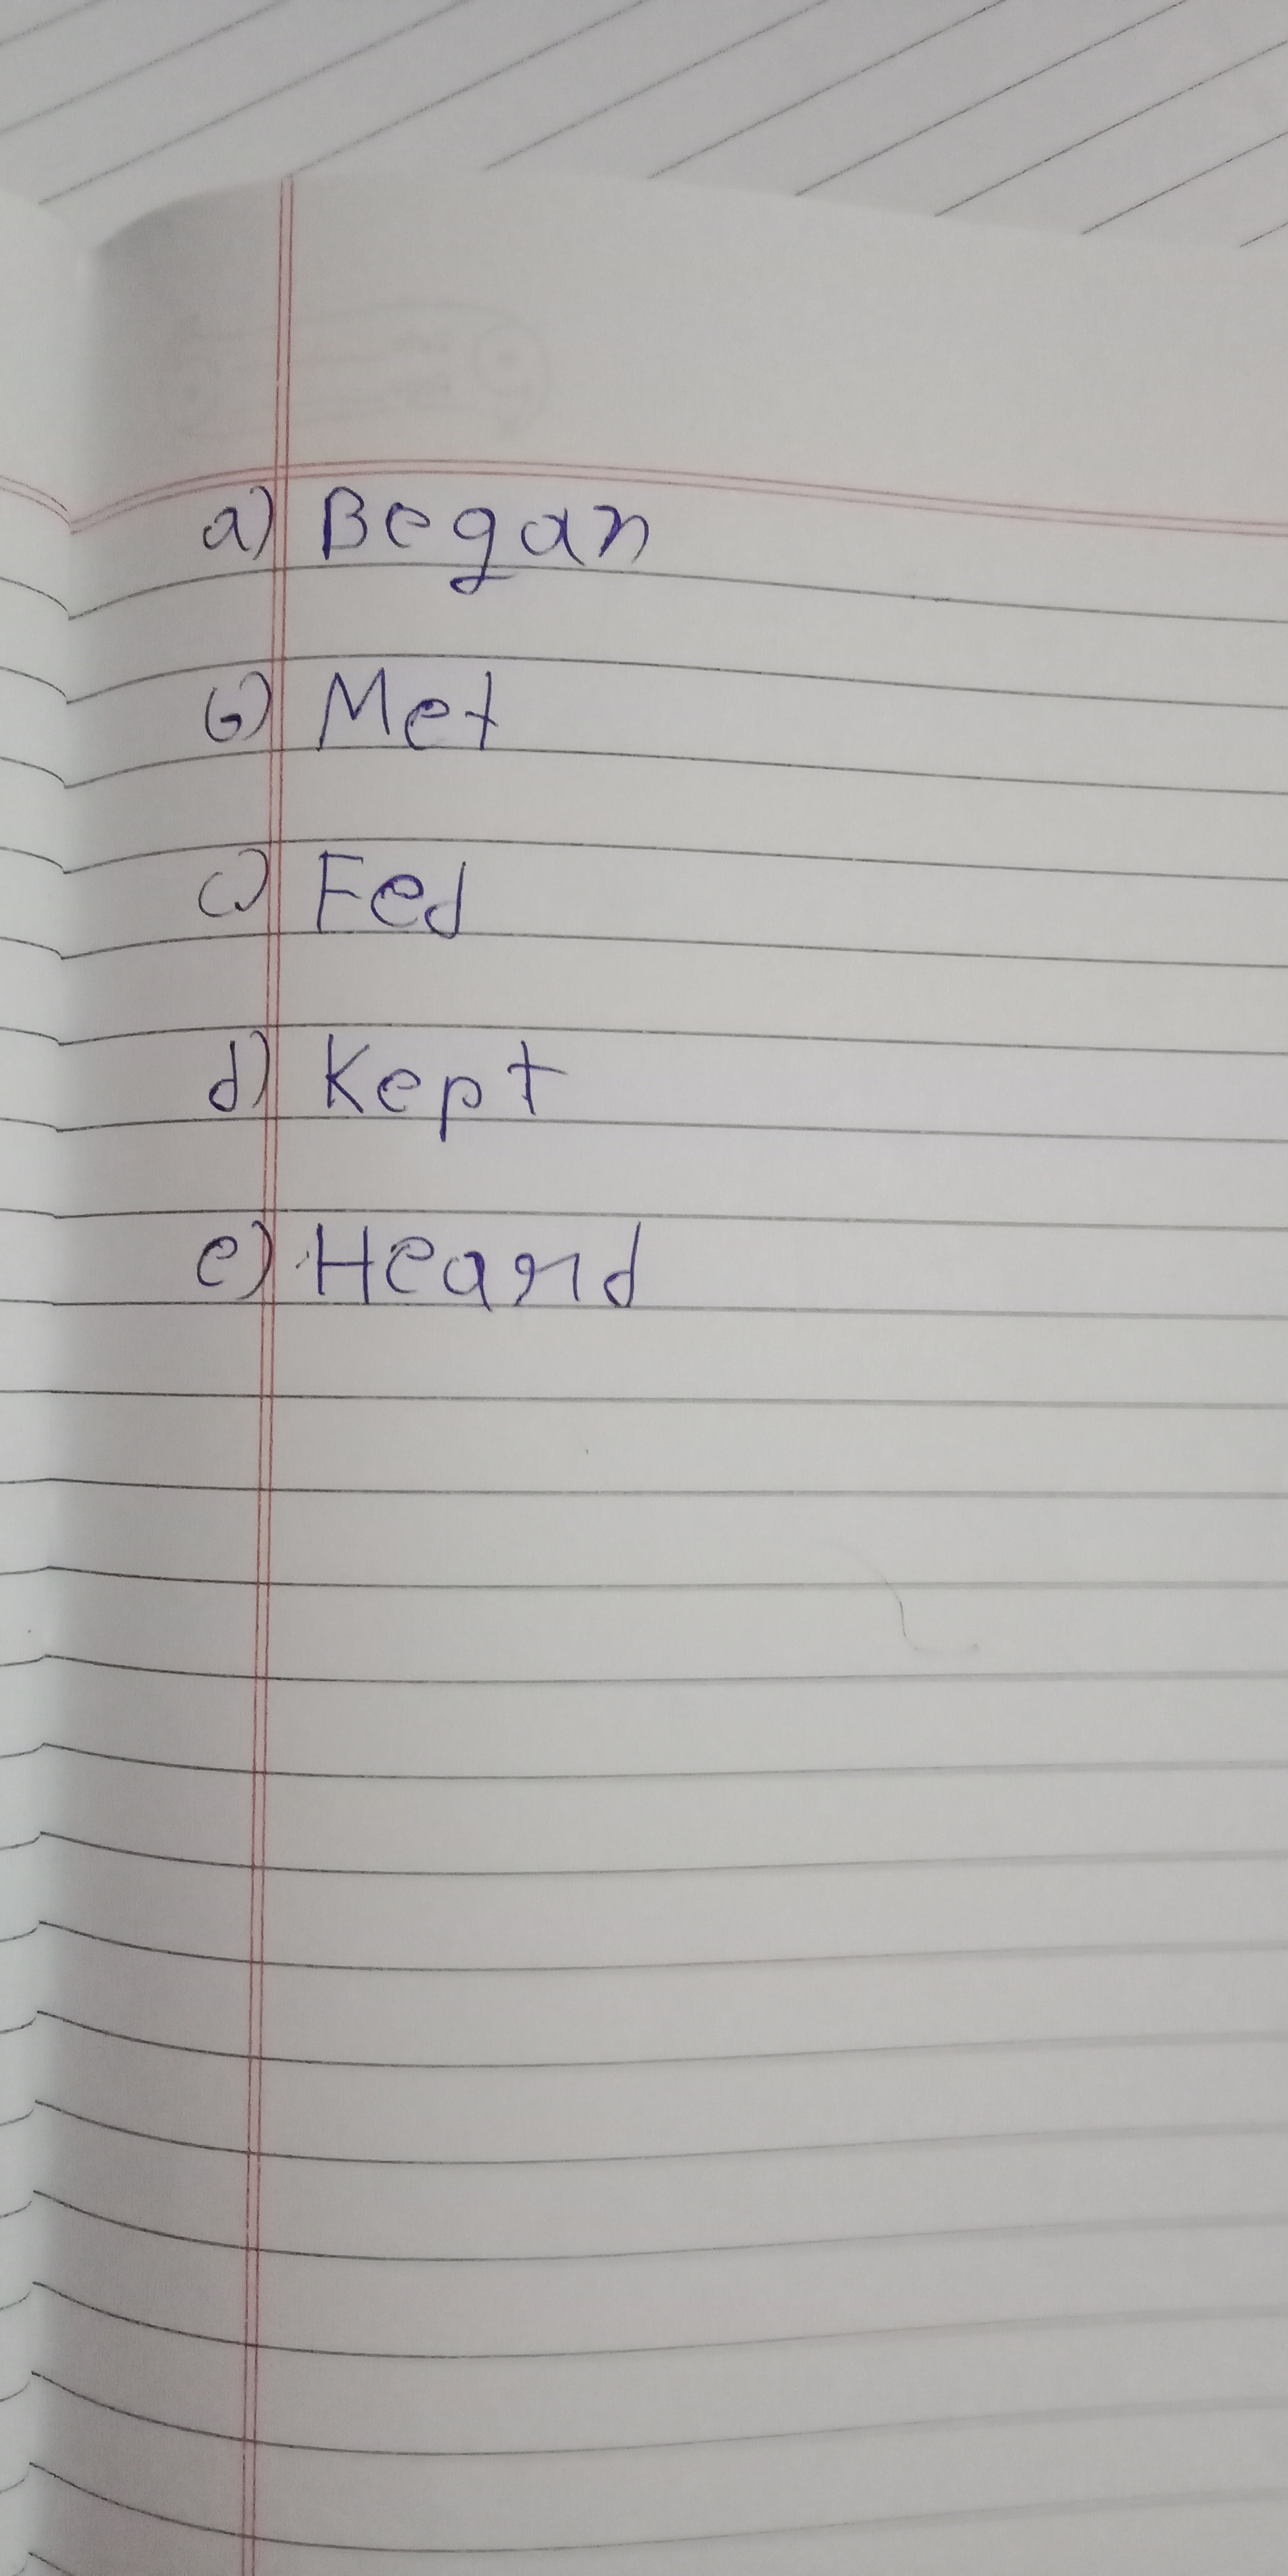 a) Began
b) Met
c) Fed
d) Kept
e) Heard